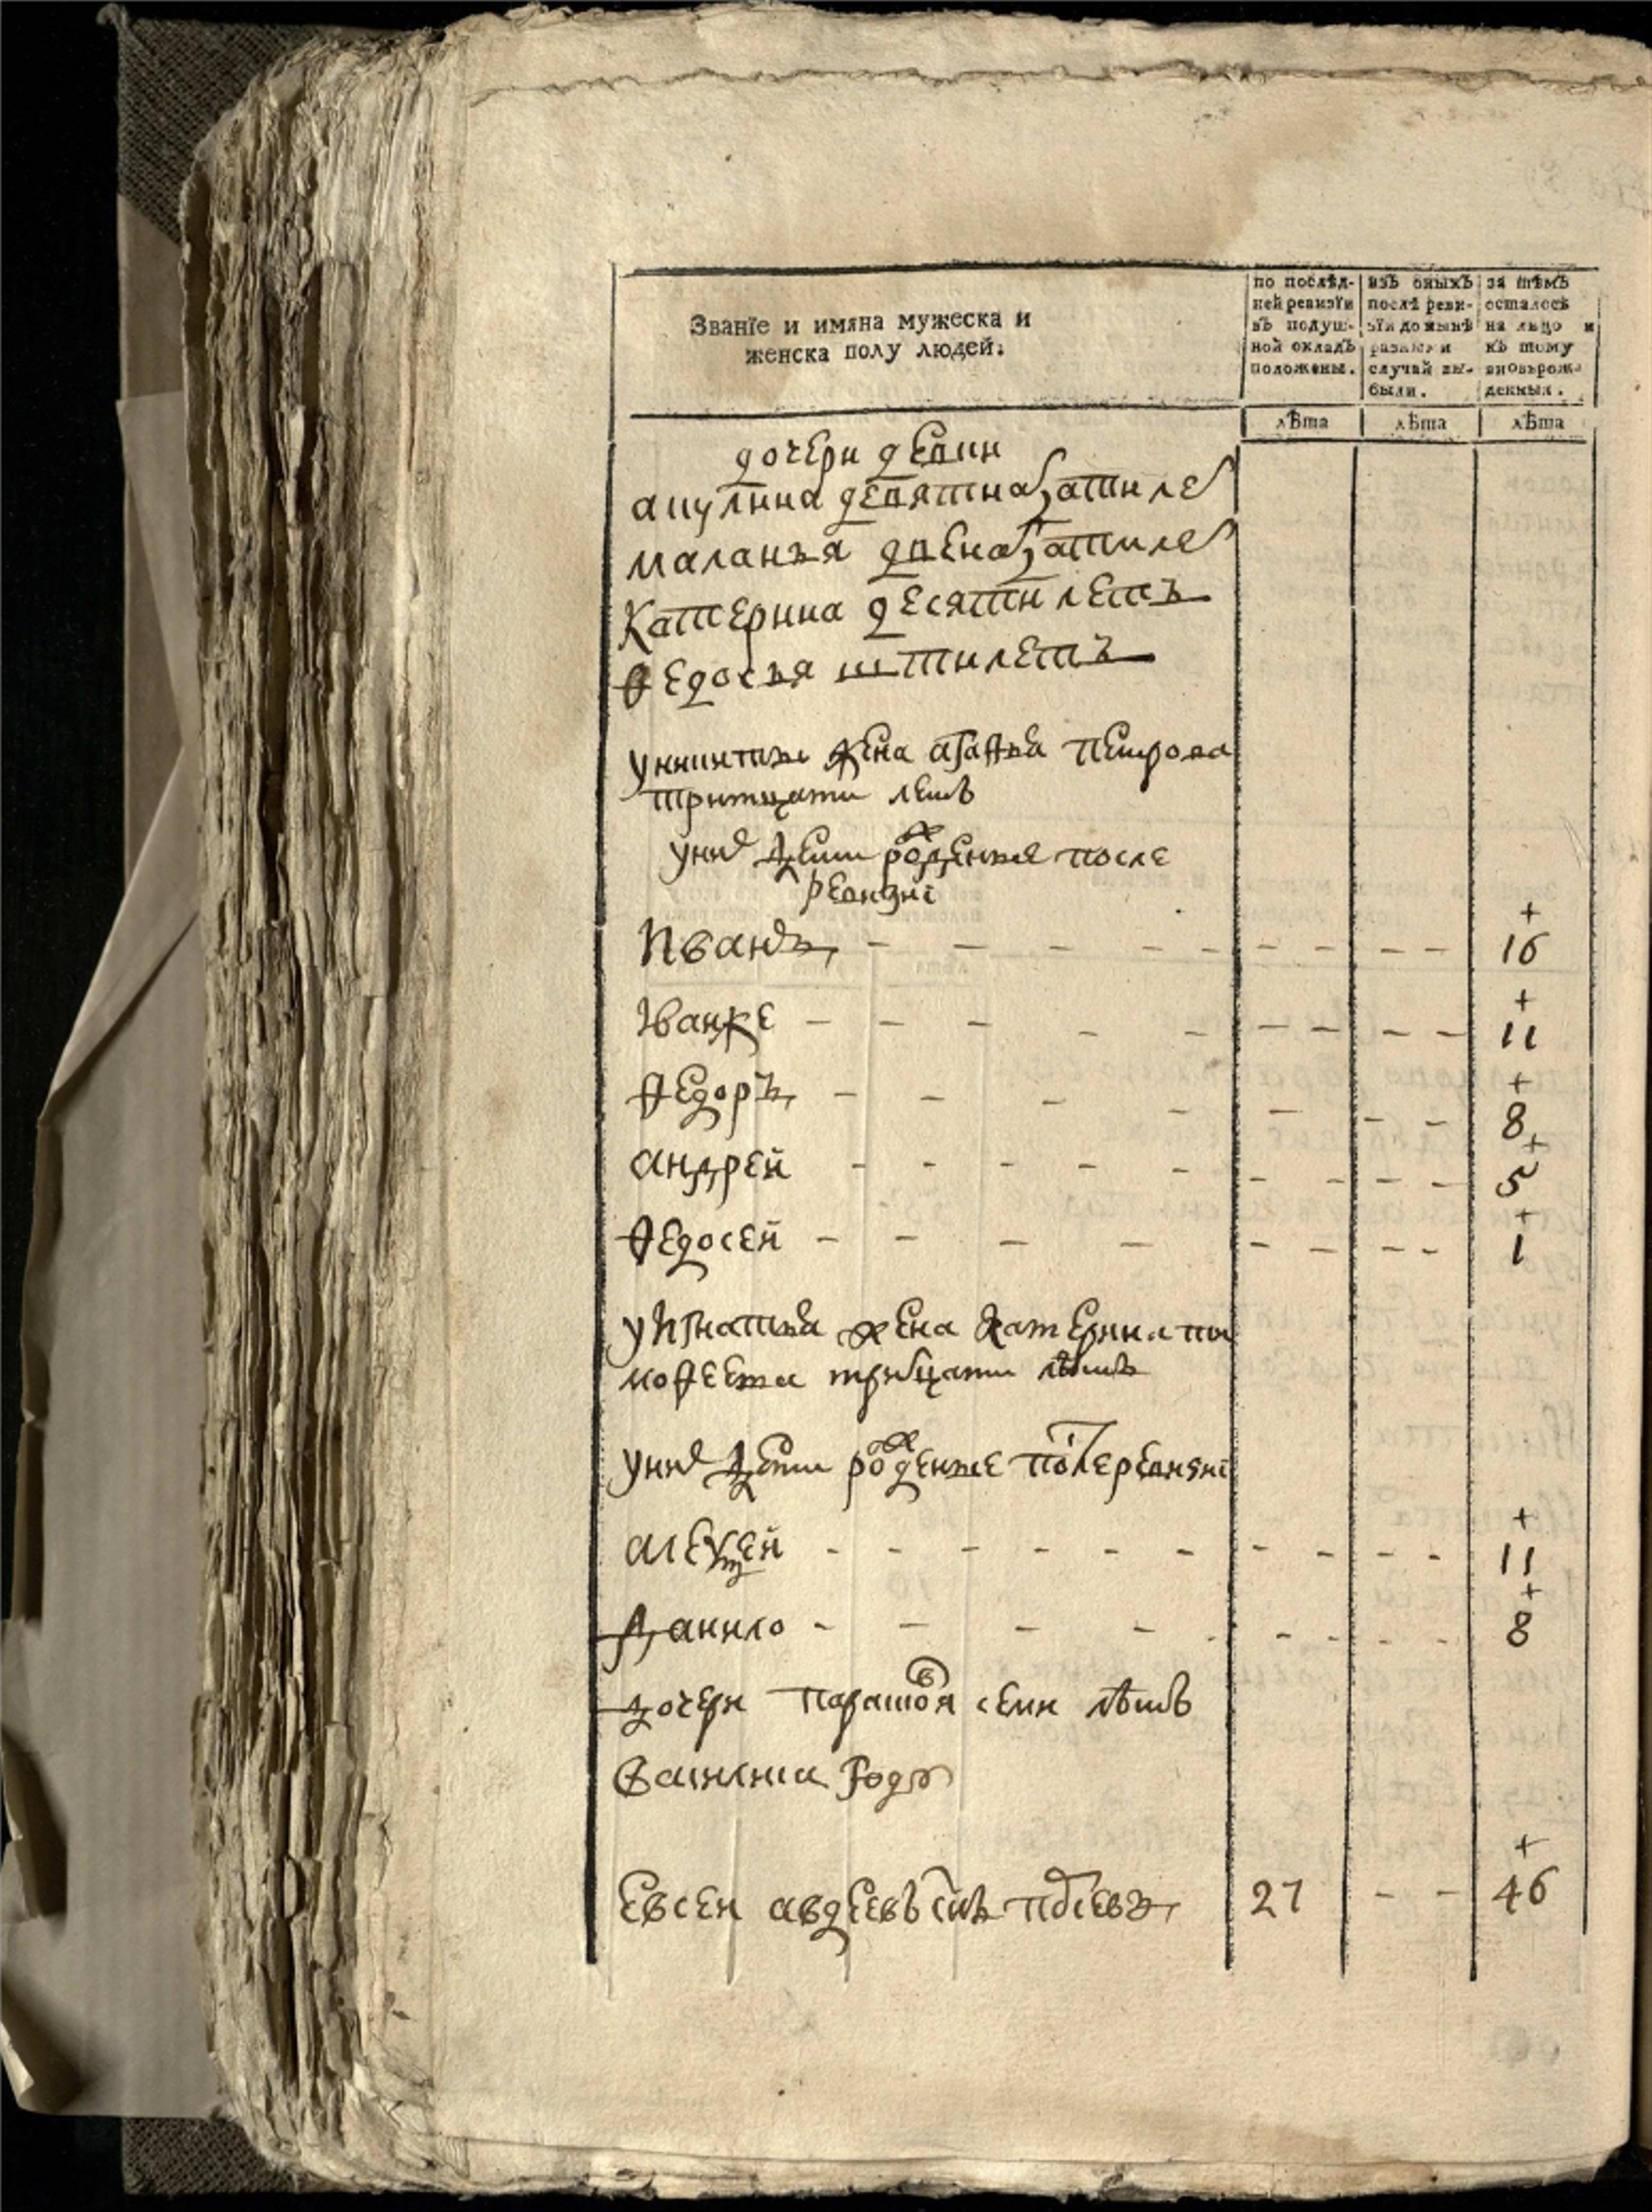 Званїе и имяна мужеска и
женска полу людей.
по послѣд-
ней ревизїи
въ подуш-
ной окладъ
положены.
изъ оныхъ
послѣ реви-
зїи до нынѣ
разными
случаи вы-
были.
за тѣмъ
осталось
на лицо и
къ тому
вновьрож-
денныя.
лѣта
лѣта
лѣта
дочери девки
акулина девятнатцати ле
маланья двенатцати ле
Катерина десяти летъ
Ѳедосья шти летъ
уникиты жена агаѳья петрова
тритцати летъ
уних дети рожденные после
ревизиї
Иванъ 16
Иванже 11
Ѳедоръ 8
андрей 5
Ѳедосей 1
уИгнатья жена катерина
моѳеева трицати лѣтъ
уних дети рожденые после ревизиї
алексей 11
данило 8
дочери парасковья семи лѣтъ
году
Евсей авдеевъ снъ 27 46